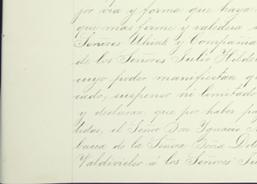 por via y forma que haya
que mas firme y validera
Señores Uhink y Compañia
de los Señores Julio
cuyo poder manifiestan
cado, suspenso ni limitado
y declaran que por haber
tidas, el Señor Don Ignacio
bacea de la Señora Doña
Valdivielso á los Señores